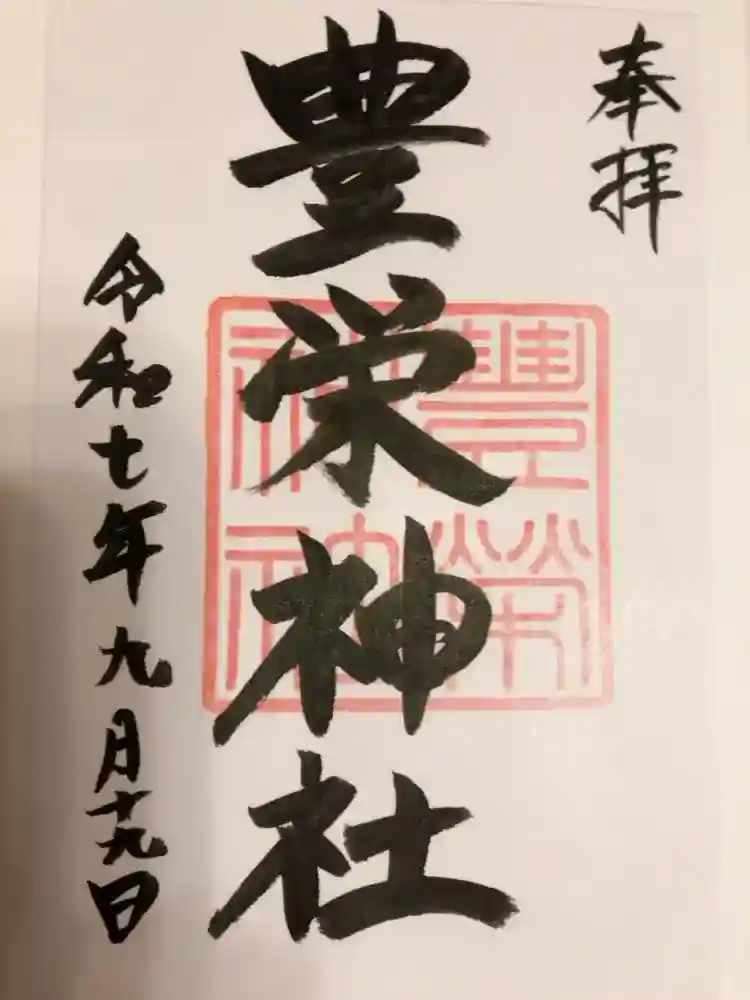 奉拝
豊栄神社
豐榮神社
令和七年九月十九日